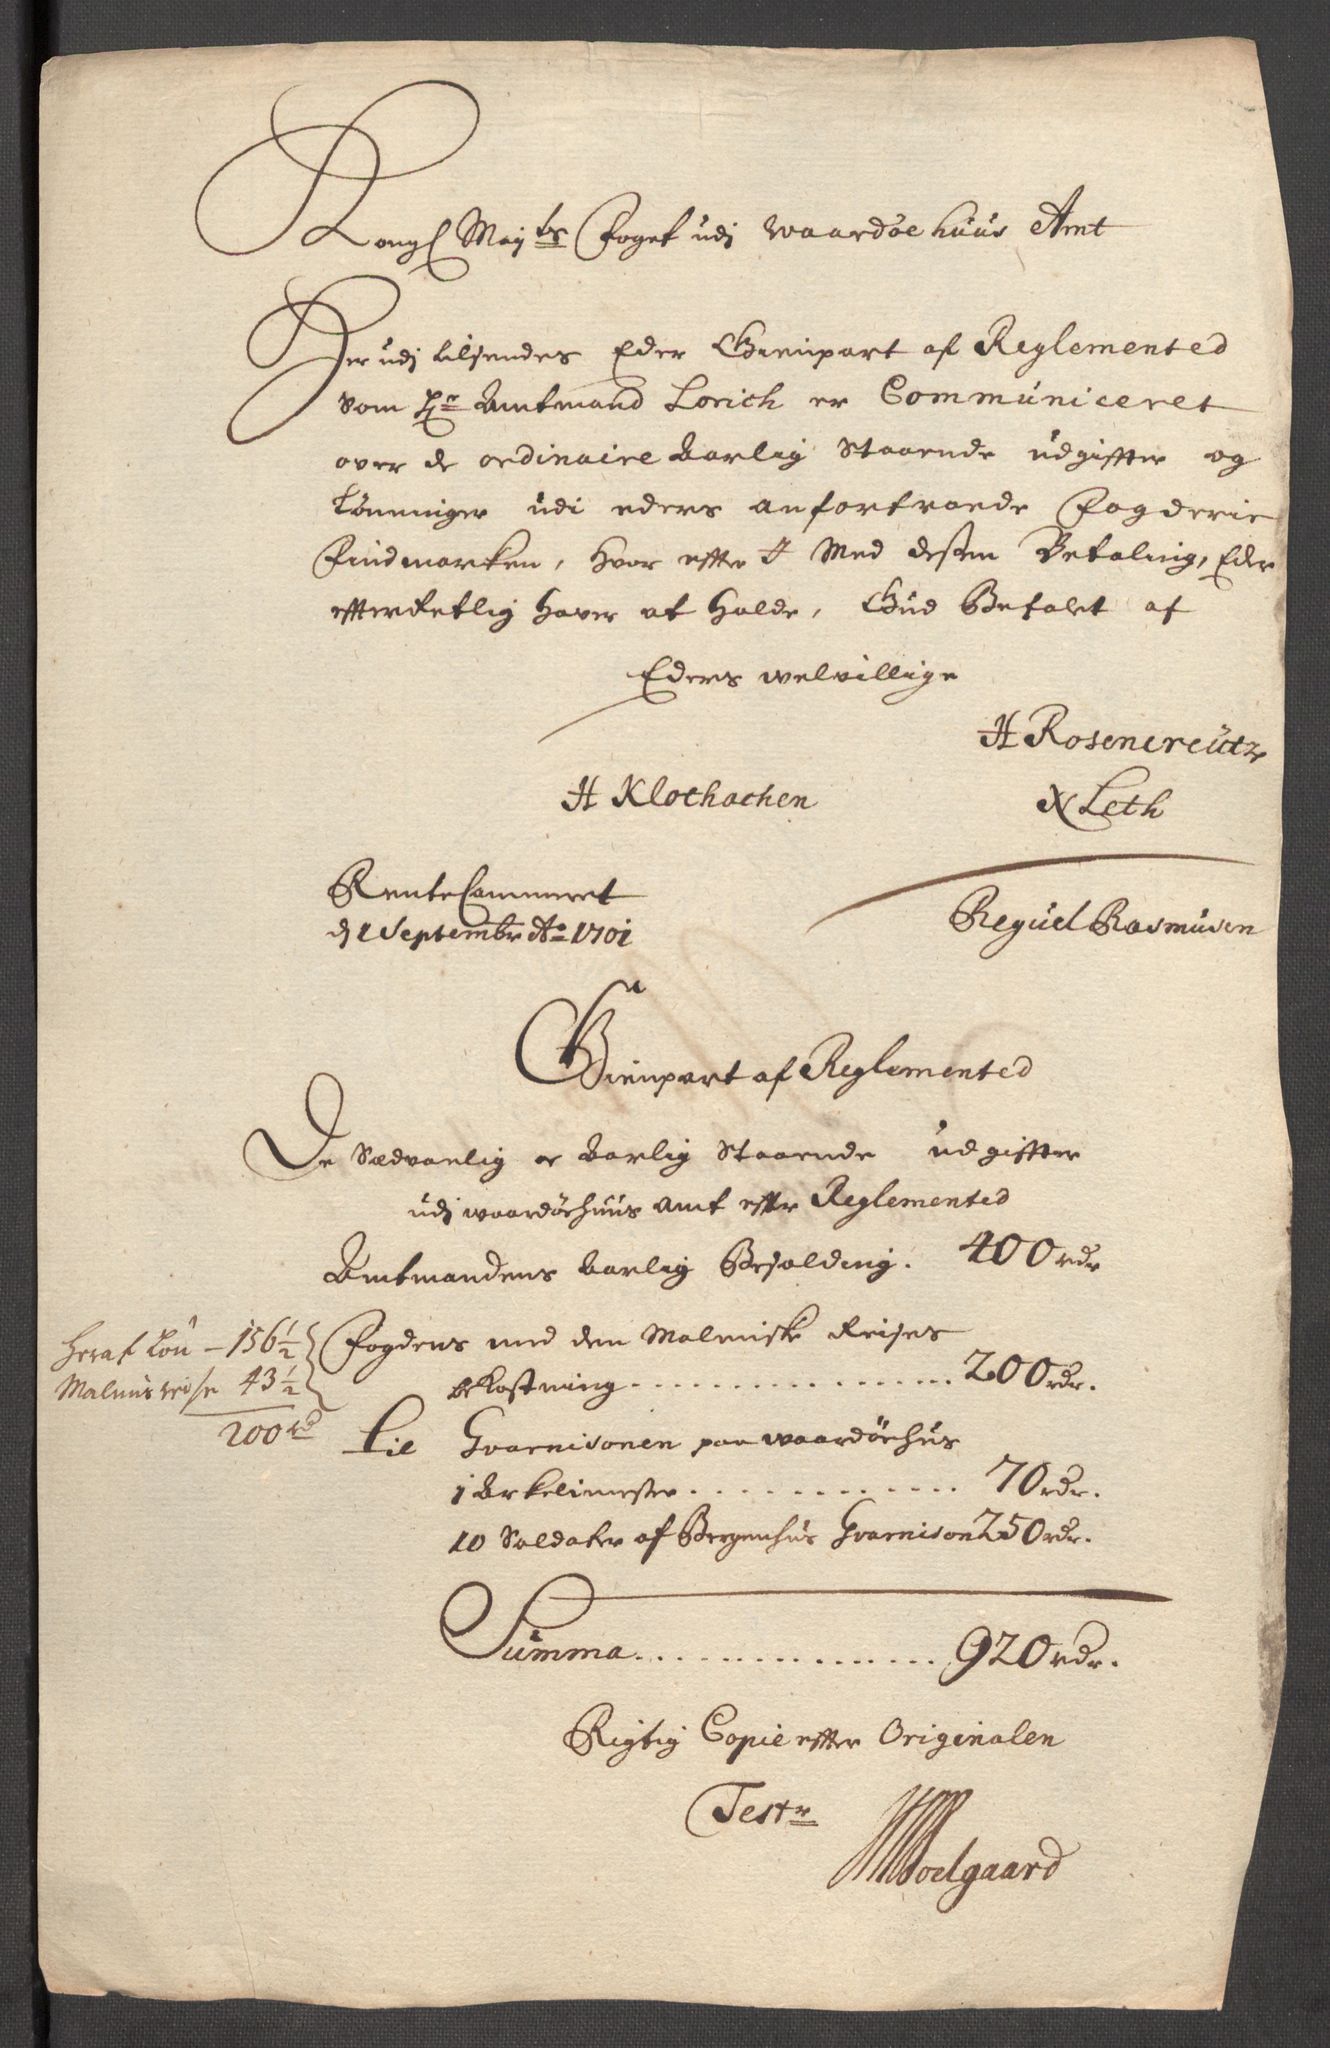 Kongl Mayts Foget udj Waardøehuus Amt
Her udj tilsendes Eder Gienpart af Reglemented
som Hr Amtmand Lorich er Communiceret
over de ordinaire Aarlig Staaende udgiffter og
Lønninger udi eders anfortroede Fogderie
Findmarken, hvor effter I Med desten Betaling, Eder
effterRetlig haver at holde, Gud Befalet af
Eders welvillige
H Rosencreütz
H Klochachen
N Leth
RenteCammeret
dj 1 Septembr Ao 1701
Reguel Rasmusen
Gienpart af Reglemented
De Sædvanlig oc Aarlig Staaende udgiffter
udj waardøehuus Amt effter Reglemented
Amtmandens Aarlig Besolding. 400 rdr
Fogdens med den Malmiske Reises
bekostning 200 rdr.
Heraf Løn – 156½
Malmis reise 43½
200 rd
Til Gvarnisonen paa waardøehus
1 Arkelimester 70 rdr.
10 Soldater af Bergenhus Gvarnison 250 rdr.
Summa 920 rdr.
Rigtig Copie effter Originalen
Testr
Soelgaard